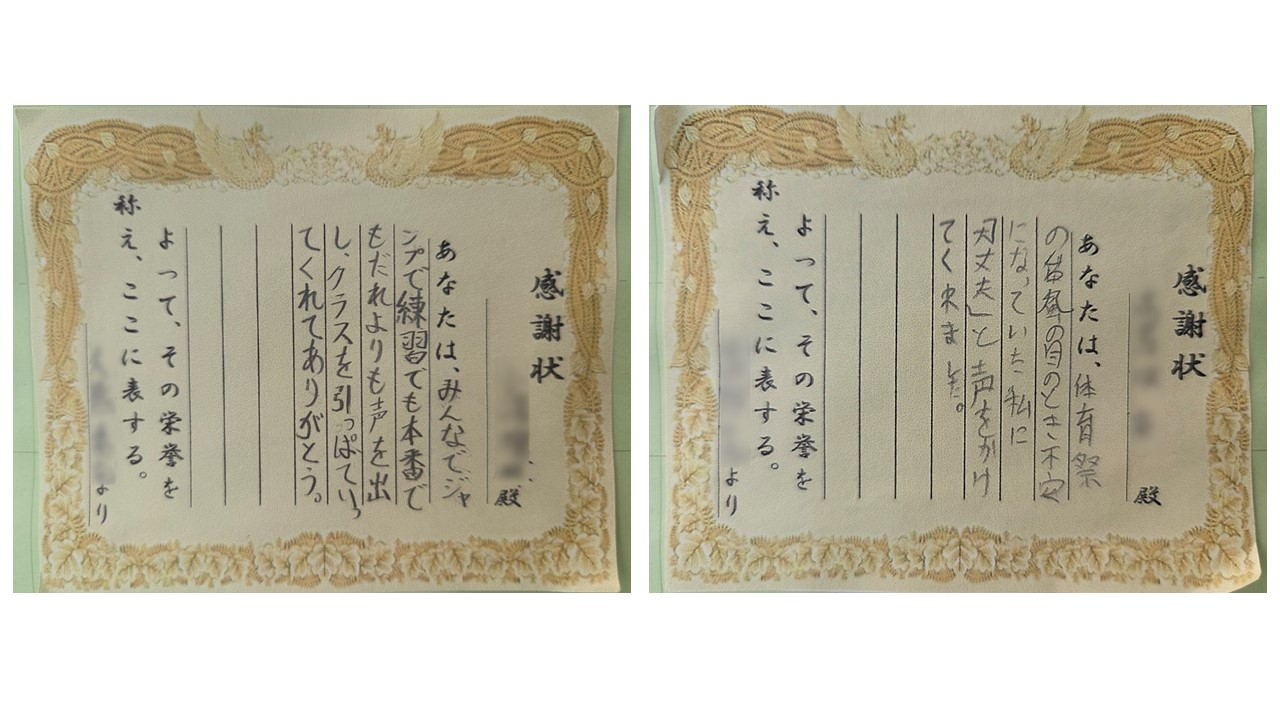 感謝状
殿
あなたは、みんなで、ジャ
ンプで練習でも本番で
もだれよりも声を出
し、クラスを引っぱていっ
てくれてありがとう。
よって、その栄誉を
称え、ここに表する。
より
感謝状
殿
あなたは、体育祭
の台風の目のとき不安
になっていた私に
「大丈夫」と声をかけ
てくれました。
よって、その栄誉を
称え、ここに表する。
より